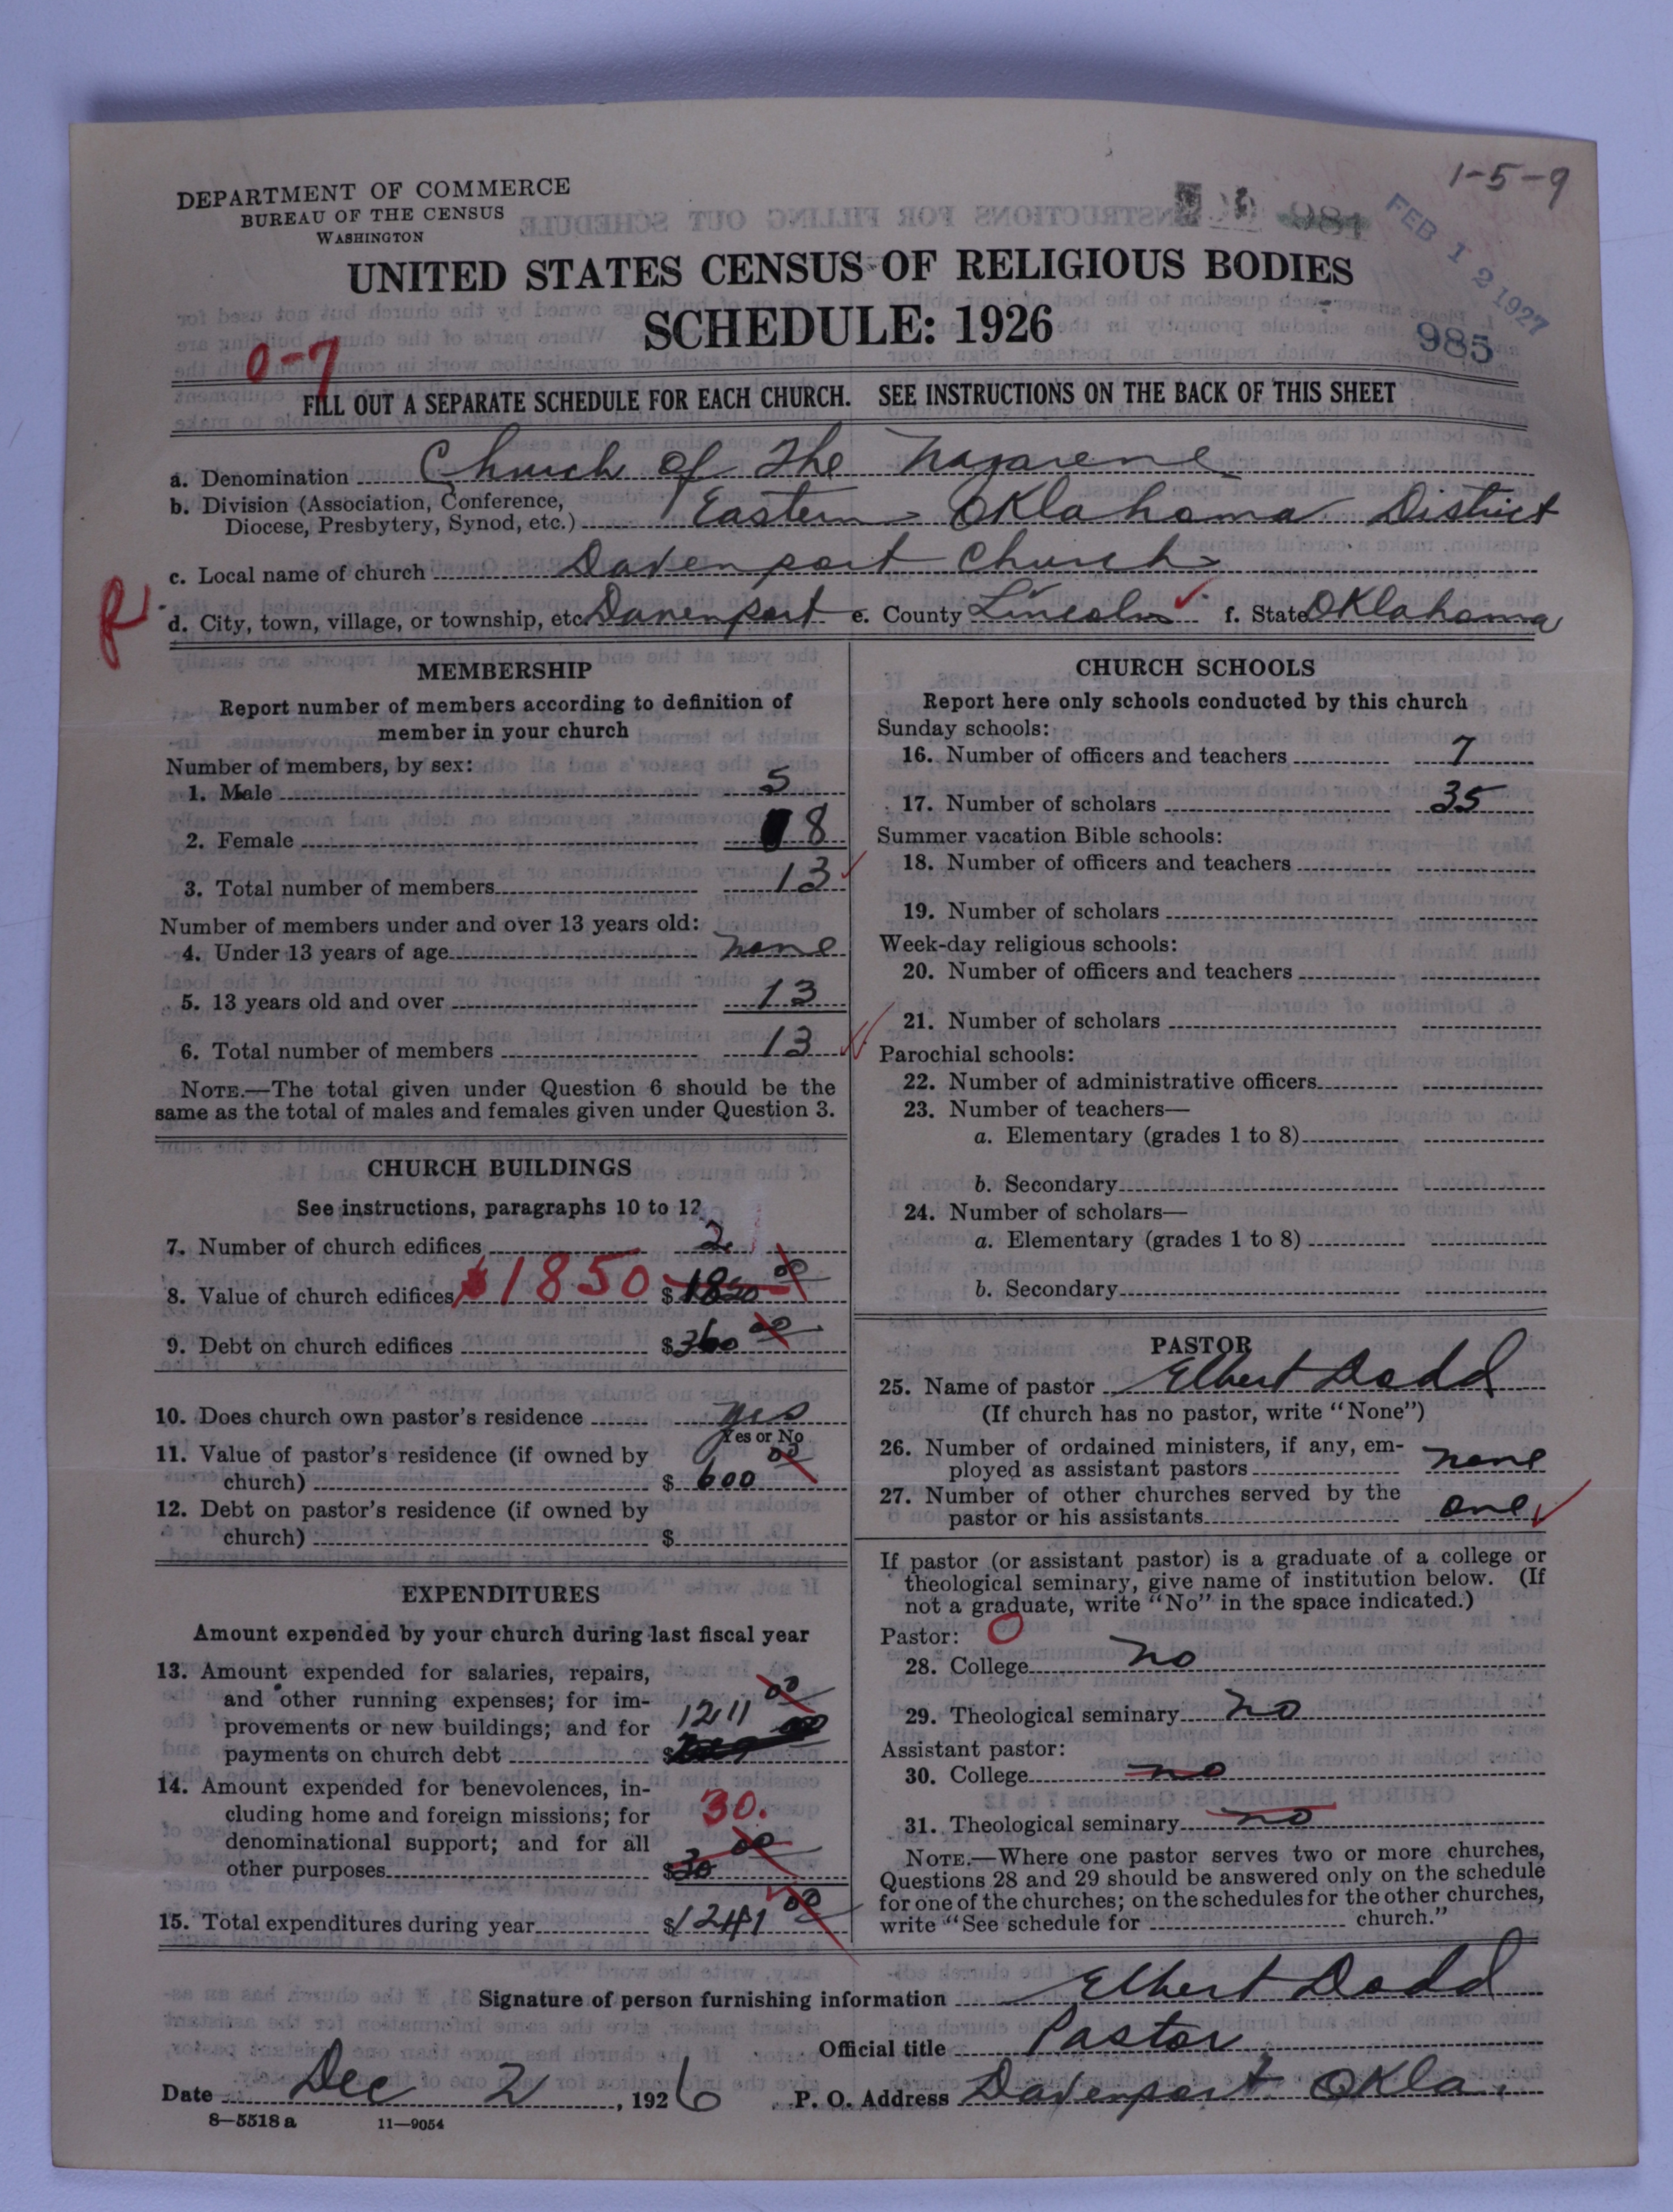 1-5-9
DEPARTMENT OF COMMERCE
BUREAU OF THE CENSUS
WASHINGTON
984
FEB 12 1927
UNITED STATES CENSUS OF RELIGIOUS BODIES
SCHEDULE: 1926
985
0-7
FILL OUT A SEPARATE SCHEDULE FOR EACH CHURCH. SEE INSTRUCTIONS ON THE BACK OF THIS SHEET
a. Denomination Church of The Nazarene
b. Division (Association, Conference,
Diocese, Presbytery, Synod, etc.) Eastern Oklahoma District
c. Local name of church Davenport Church
R
d. City, town, village, or township, etc. Davenport e. County Lincoln f. State Oklahoma
MEMBERSHIP
Report number of members according to definition of
member in your church
Number of members, by sex:
1. Male 5
2. Female 8
3. Total number of members 13
Number of members under and over 13 years old:
4. Under 13 years of age none
5. 13 years old and over 13
6. Total number of members 13
NOTE.—The total given under Question 6 should be the
same as the total of males and females given under Question 3.
CHURCH BUILDINGS
See instructions, paragraphs 10 to 12
7. Number of church edifices 2
8. Value of church edifices $1850 $1850 00
9. Debt on church edifices $360 00
10. Does church own pastor's residence yes
Yes or No
11. Value of pastor's residence (if owned by
church) $600 00
12. Debt on pastor's residence (if owned by
church) $
EXPENDITURES
Amount expended by your church during last fiscal year
13. Amount expended for salaries, repairs,
and other running expenses; for im-
provements or new buildings; and for 1211 00
payments on church debt $
14. Amount expended for benevolences, in-
cluding home and foreign missions; for 30.
denominational support; and for all
other purposes $30 00
15. Total expenditures during year $1241 00
CHURCH SCHOOLS
Report here only schools conducted by this church
Sunday schools:
16. Number of officers and teachers 7
17. Number of scholars 35
Summer vacation Bible schools:
18. Number of officers and teachers
19. Number of scholars
Week-day religious schools:
20. Number of officers and teachers
21. Number of scholars
Parochial schools:
22. Number of administrative officers
23. Number of teachers—
a. Elementary (grades 1 to 8)
b. Secondary
24. Number of scholars—
a. Elementary (grades 1 to 8)
b. Secondary
PASTOR
25. Name of pastor Elbert Dodd
(If church has no pastor, write "None")
26. Number of ordained ministers, if any, em-
ployed as assistant pastors none
27. Number of other churches served by the
pastor or his assistants one
If pastor (or assistant pastor) is a graduate of a college or
theological seminary, give name of institution below. (If
not a graduate, write "No" in the space indicated.)
Pastor: 0
28. College no
29. Theological seminary no
Assistant pastor:
30. College no
31. Theological seminary no
NOTE.—Where one pastor serves two or more churches,
Questions 28 and 29 should be answered only on the schedule
for one of the churches; on the schedules for the other churches,
write "See schedule for church."
Signature of person furnishing information Elbert Dodd
Official title Pastor
Date Dec 2, 1926 P. O. Address Davenport Okla.
8—5518 a 11—9054